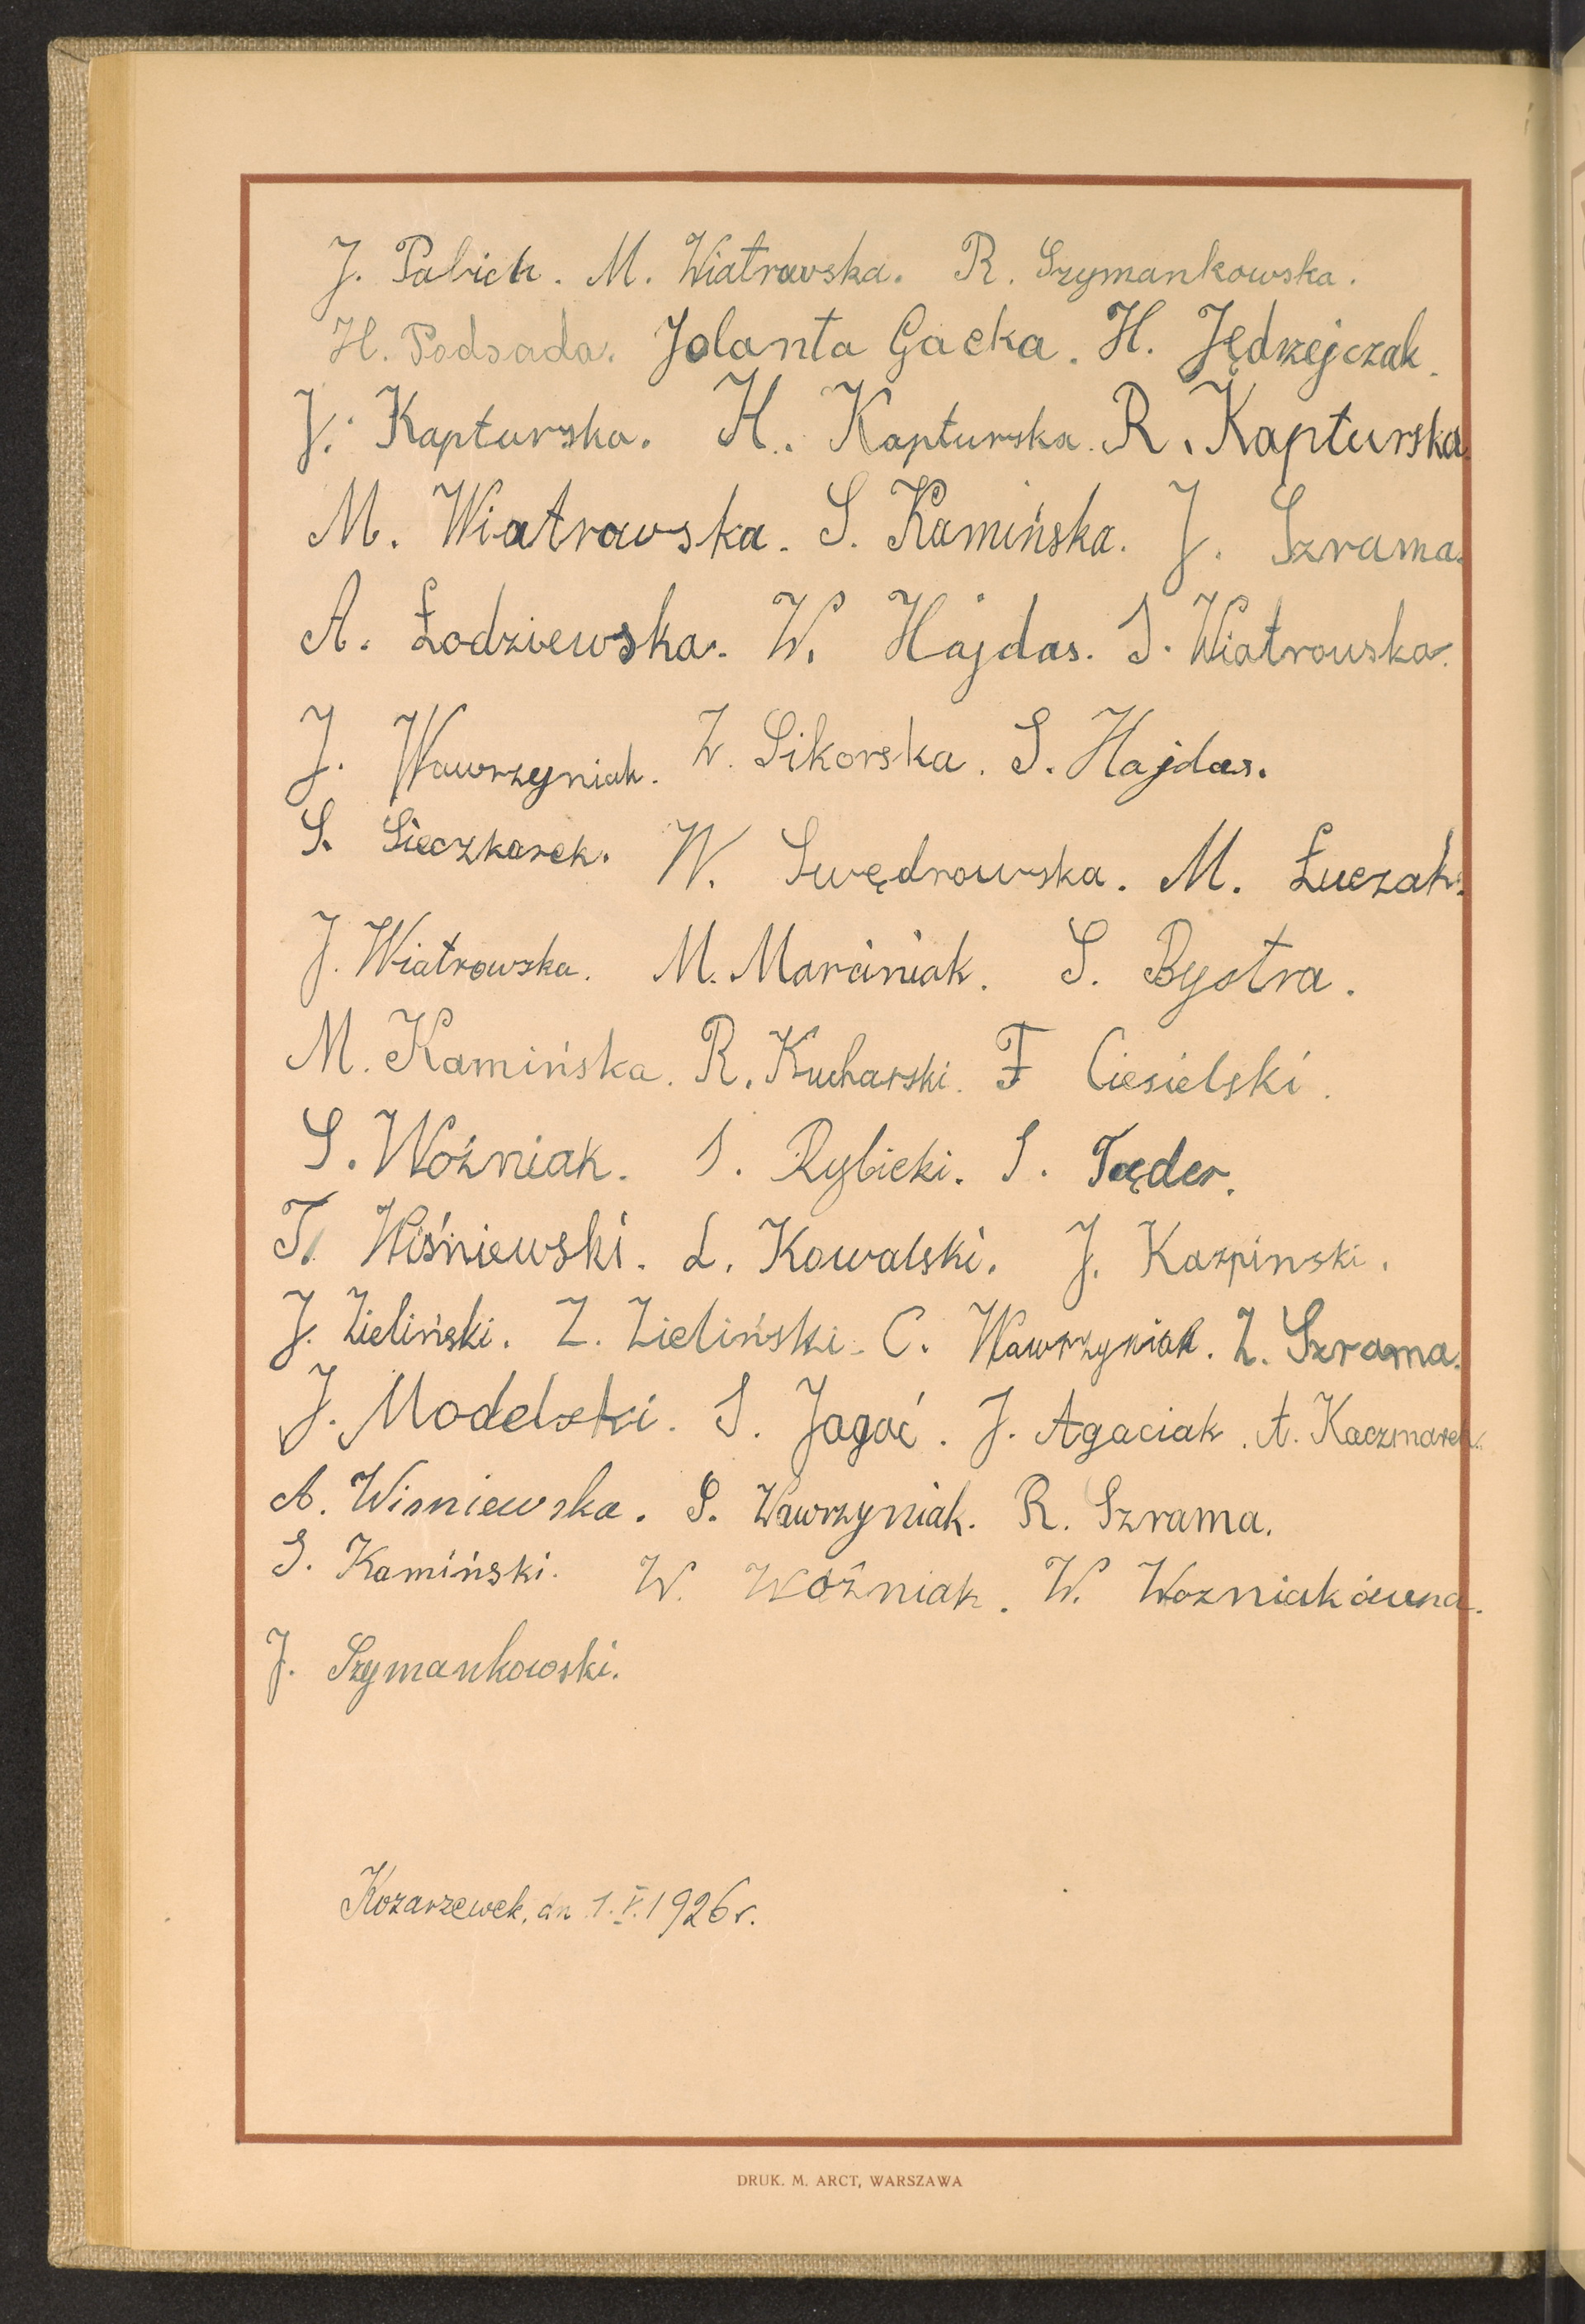 J. Pabich. M. Wiatrowska. R. Szymankowska.
H. Podsada. Jolanta Gacka. H. Jędrzejczak.
J. Kapturska. H. Kapturska. R. Kapturska.
M. Wiatrowska. S. Kamińska. J. Szrama.
A. Łodziewska. W. Hajdas. S. Wiatrowska.
J. Wawrzyniak. Z. Sikorska. S. Hajdas.
S. Sieczkarek. W. Swędrowska. M. Łuczak.
J. Wiatrowska. M. Marciniak. S. Bystra.
M. Kamińska. R. Kucharski. F Ciesielski.
S. Woźniak. S. Rybicki. S. Tęder.
T. Wiśniewski. L. Kowalski. J. Karpinski.
J. Zieliński. Z. Zieliński. C. Wawrzyniak. Z. Szrama.
J. Modelski. S. Jagać. J. Agaciak. A. Kaczmarek.
A. Wisniewska. S. Wawrzyniak. R. Szrama.
S. Kamiński. W. Woźniak. W. Wozniakówna.
J. Szymankowski.
Kozarzewek, dn 1.V.1926 r.
DRUK. M. ARCT, WARSZAWA